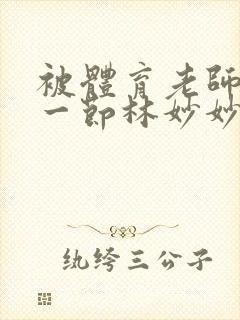 被體育老師
一節林妙妙
纨绔三公子